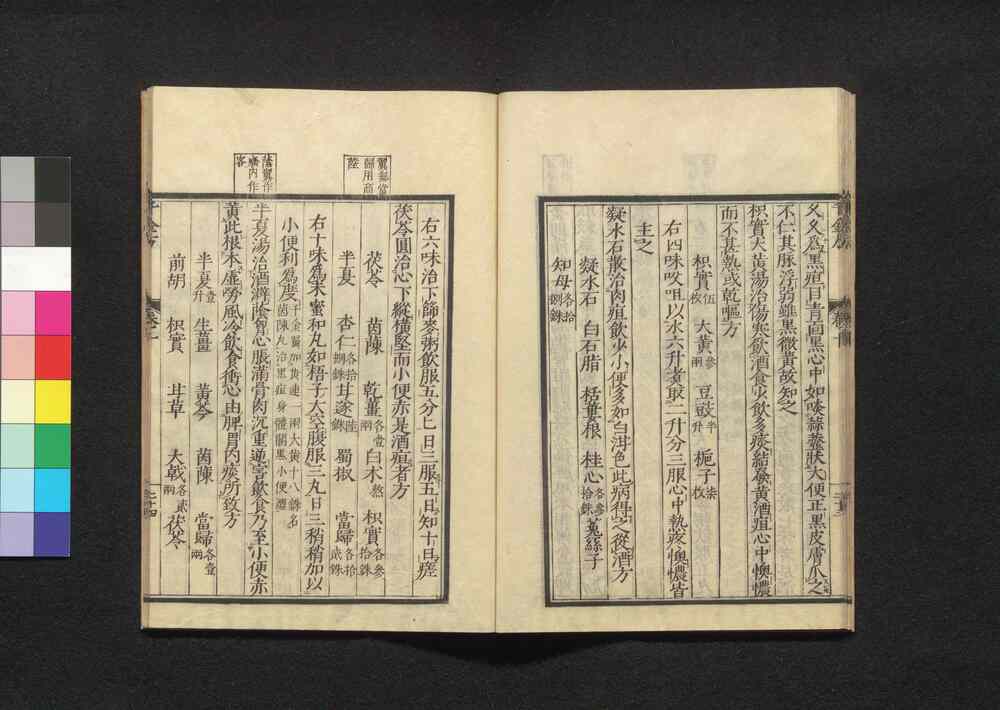 久久爲黒疸目青面黒心中如啖蒜虀狀大便正黒皮膚爪之
不仁其脉浮弱雖黒微黄故知之
枳實大黄湯治傷寒飲酒食少飲多痰結發黄酒疸心中懊憹
而不甚熱或乾嘔方
枳實伍枚 大黄參兩 豆豉半升 梔子柒枚
右四味㕮咀以水六升煮取二升分三服心中熱疼懊憹皆
主之
凝水石散治肉疸飲少小便多如白泔色此病得之從酒方
凝水石 白石脂 栝蔞根 桂心各參拾銖 菟絲子
知母各拾捌銖
右六味治下篩麥粥飲服五分匕日三服五日知十日瘥
茯苓圓治心下縱橫堅而小便赤是酒疸者方
茯苓 茵蔯 乾薑各壹兩 白术熬 枳實各參拾銖
半夏 杏仁各拾捌銖 甘遂陸銖 蜀椒 當歸各拾貳銖
右十味爲末蜜和丸如梧子大空腹服三丸日三稍稍加以
小便利爲度千金翼加黄連一兩大黄十八銖名茵蔯丸治黒疸身體闇黒小便澀
半夏湯治酒澼蔭智心脹滿骨肉沉重逆害飲食乃至小便赤
黄此根本虚勞風冷飲食衝心由脾胃内痰所致方
半夏壹升 生薑 黄芩 茵蔯 當歸各壹兩
前胡 枳實 甘草 大戟各貳兩 茯苓
翼無當歸用商陸
蔭翼作癊内作客